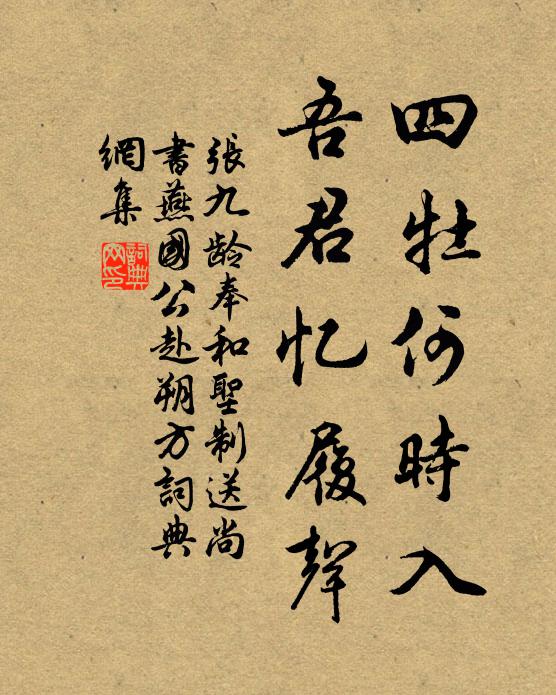 四牡何時入
吾君忆履聲
張九龄奉和聖制送尚
書燕國公赴朔方詞典
網集
詞典
网印